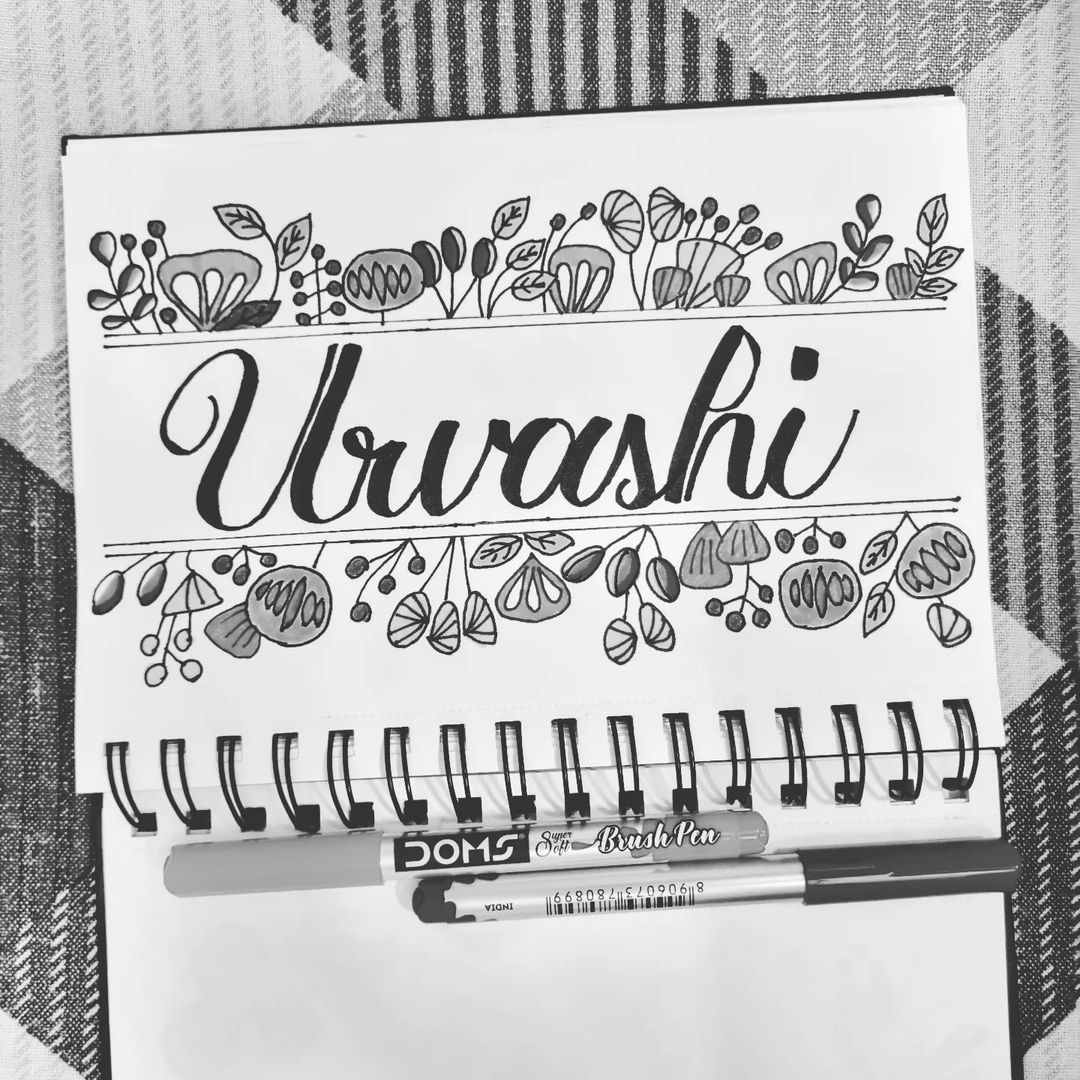 Urvashi
DOMS® Super Soft Brush Pen
8906073780899
INDIA